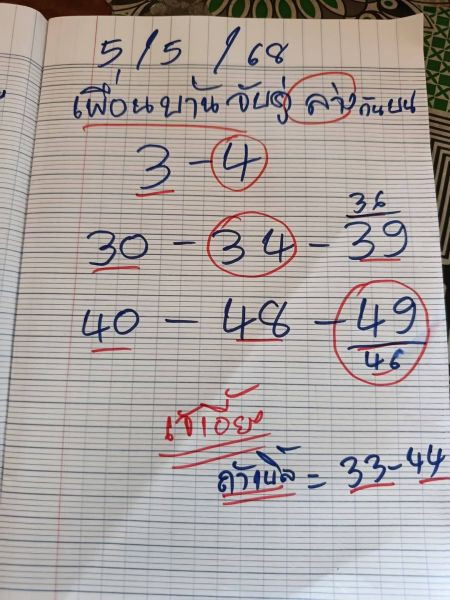 5/5/68
เพื่อนบ้าน จับคู่ ล่าง กันบน
3-4
36
30-34-39
40-48-49
46
เข้าเฮีย
คว้าเบิ้ล = 33-44